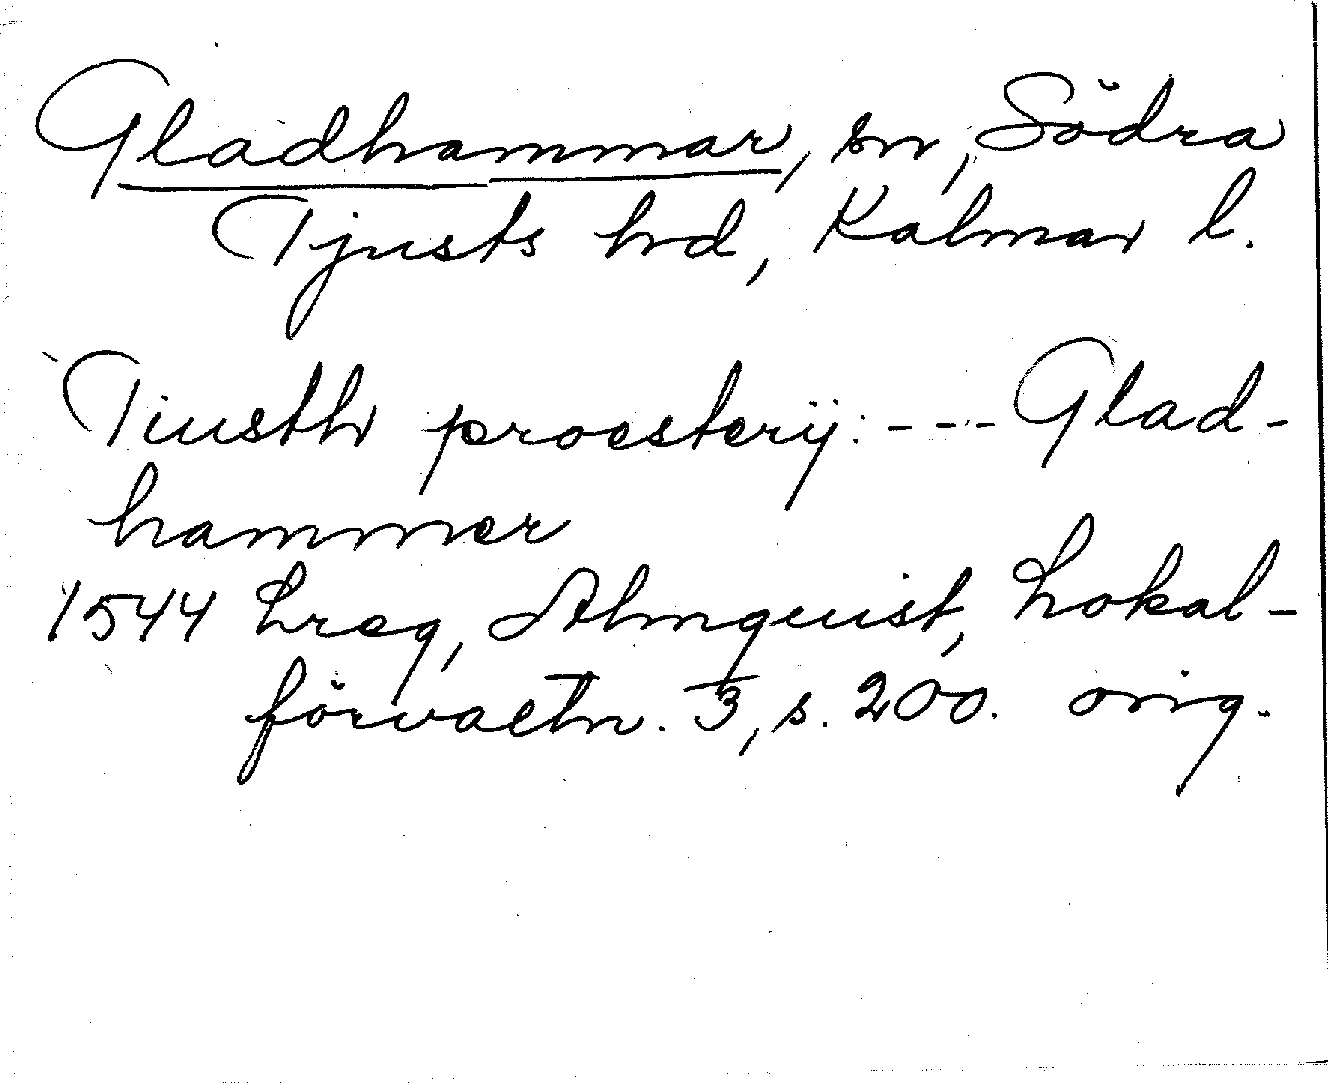 Gladhammar, sn, Södra
Tjusts hd, Kalmar l.
Tiusth proesterij: --- Glad-
hammer
1544 Lreg, Almquist, Lokal-
förvaltn. 3, s. 200. orig.